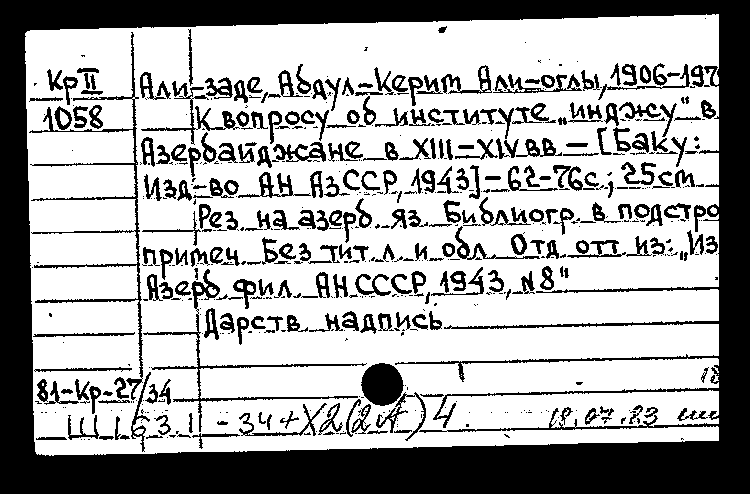 Кр II Али-заде, Абдул-Керим Али-оглы, 1906-197
1058 К вопросу об институте „инджу" в
Азербайджане в XIII-XIV вв. - [Баку:
Изд-во АН АзССР, 1943] - 62-76 с.; 25 cm
Рез. на азерб. яз. Библиогр. в подстро
примеч. Без тит. л. и обл. Отд. отт. из: „Из
Азерб. фил. АН СССР, 1943, N8"
Дарств. надпись
81-Кр-27/34 18
Ш163.1 - 34 + Х2(2А)4. 18.07.83